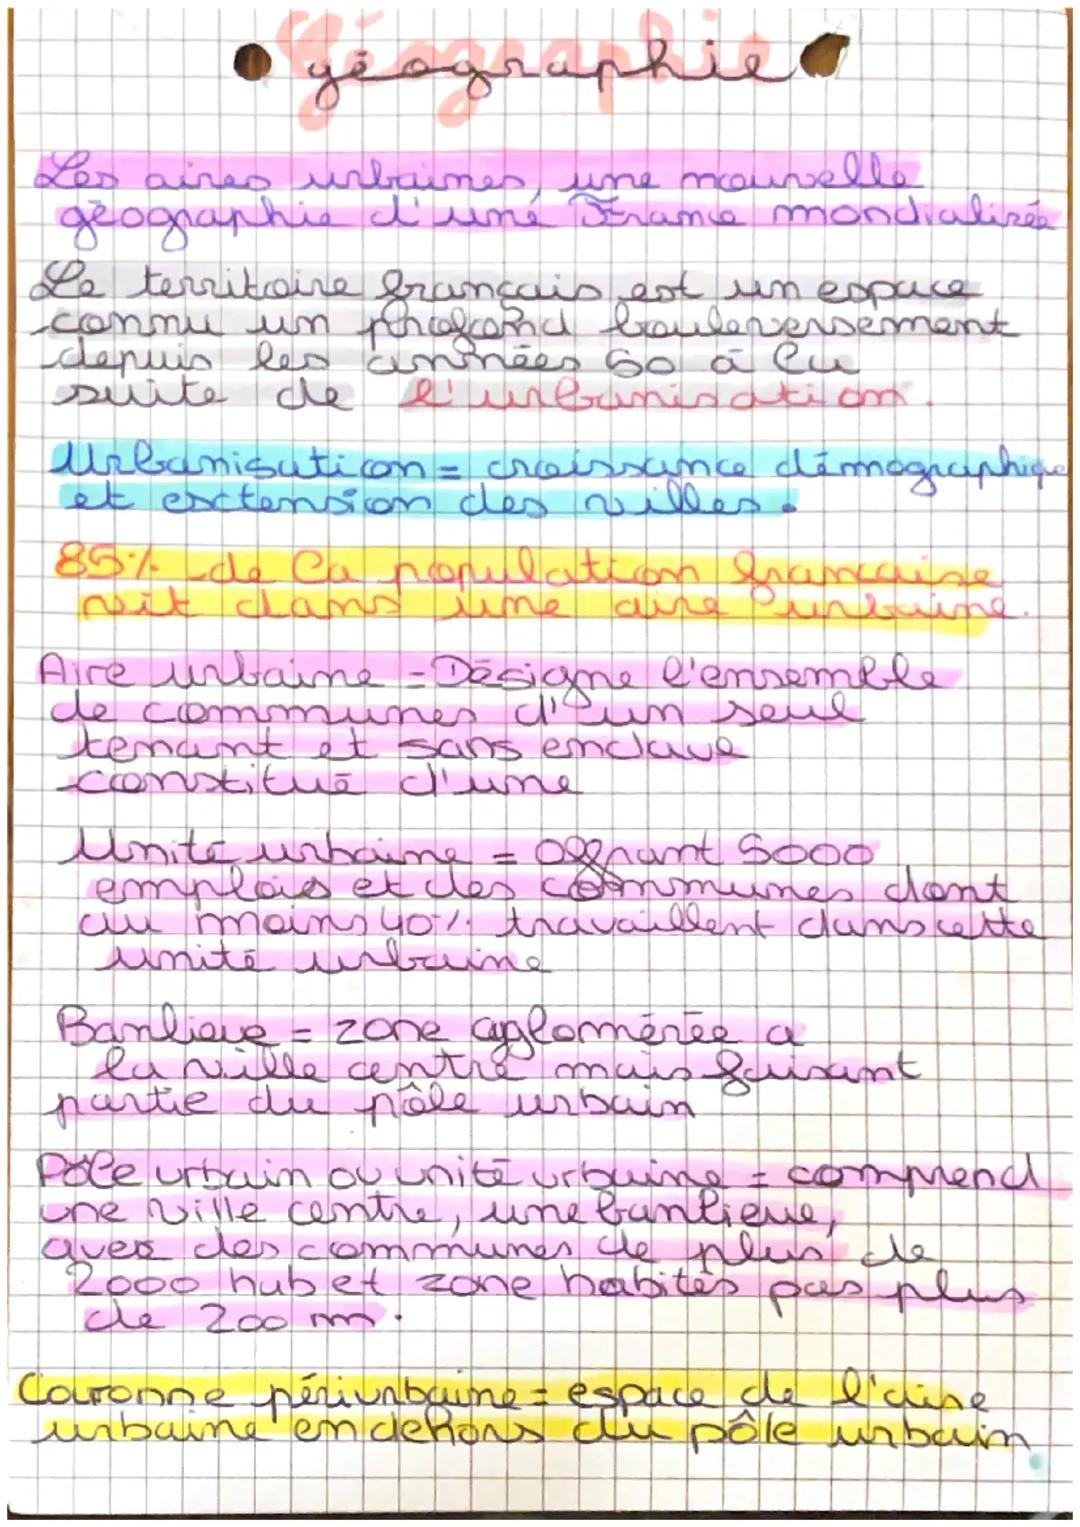 Géographie
géographie
Les aires urbaines, une nouvelle
géographie d'une France mondialisée
Le territoire français est un espace
connu un profond bouleversement
depuis les années 60 à la
suite de l'urbanisation.
Urbanisation = croissance démographique
et exctension des villes.
85% de la population française
vit dans une aire urbaine.
Aire urbaine = Désigne l'ensemble
de communes d'un seul
tenant et sans enclave
constitué d'une
Unité urbaine = Offrant 5000
emplois et des communes dont
au moins 40% travaillent dans cette
unité urbaine
Banlieue = zone agglomérée a
la ville centre mais faisant
partie du pôle urbain
Pôle urbain ou unité urbaine = comprend
une ville centre, une banlieue,
avec des communes de plus de
2000 hab et zone habités pas plus
de 200 m.
Couronne périurbaine = espace de l'aire
urbaine en dehors du pôle urbain.